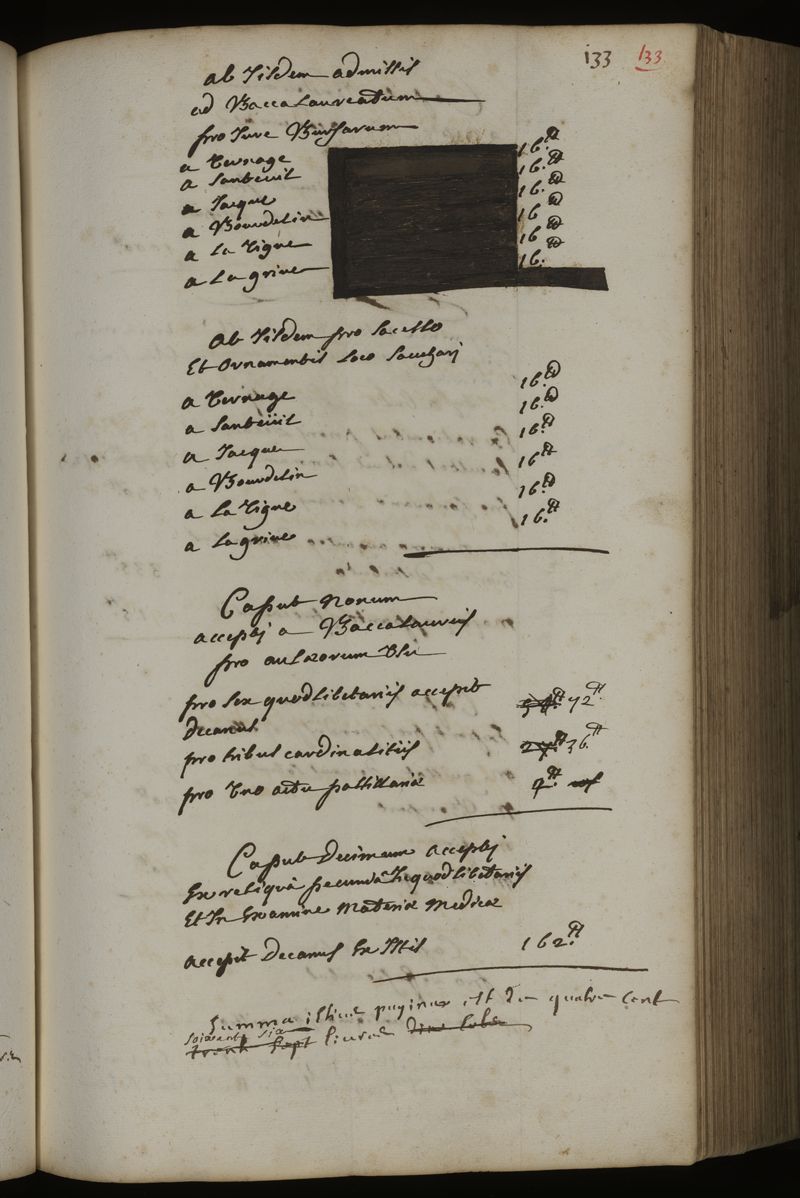 133 133
ab Iisdem admissis
ad Baccalaureatum
pro Jure Bursarum
a Ternage 16.tt
a Santeuil 16.tt
a Jacque 16.tt
a Bourdelin 16 tt
a La Vigne 16 tt
a Lagrive 16.tt
ab Iisdem pro Sacello
Et Ornamentis Loco Sacchari
a Ternage 16.tt
a Santeüil 16.tt
a Jacque 16.tt
a Bourdelin 16tt
a La Vigne 16.tt
a Lagrive 16.tt
Caput Nonum
accepti a Baccalaureis
pro aulæorum Usu
pro sex quodlibetariis accepit
Decanus 72tt
pro tribus cardinalitiis 36.tt
pro Uno actu pastillariæ
Caput Decimum accepti
Ex reliquâ pecuniâ In quodlibetariis
Et In Examine Materiæ Medicæ
accepit Decanus Ex Istis 162.tt
Summa istius paginæ est de quatre Cent
soixante six
trente sept livres